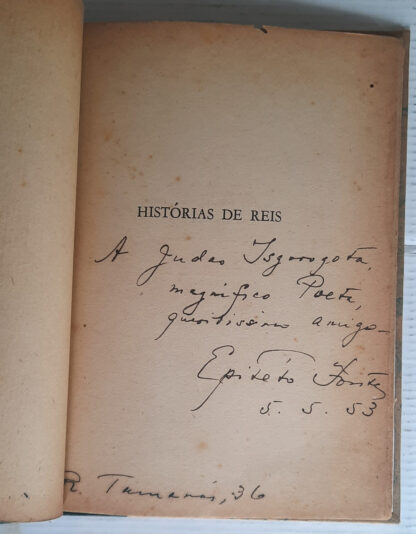 HISTÓRIAS DE REIS
A Judas Isgorogota,
magnífico Poeta,
queridissimo amigo
Epitéto Fontes
5. 5. 53
R. Tamanás, 36